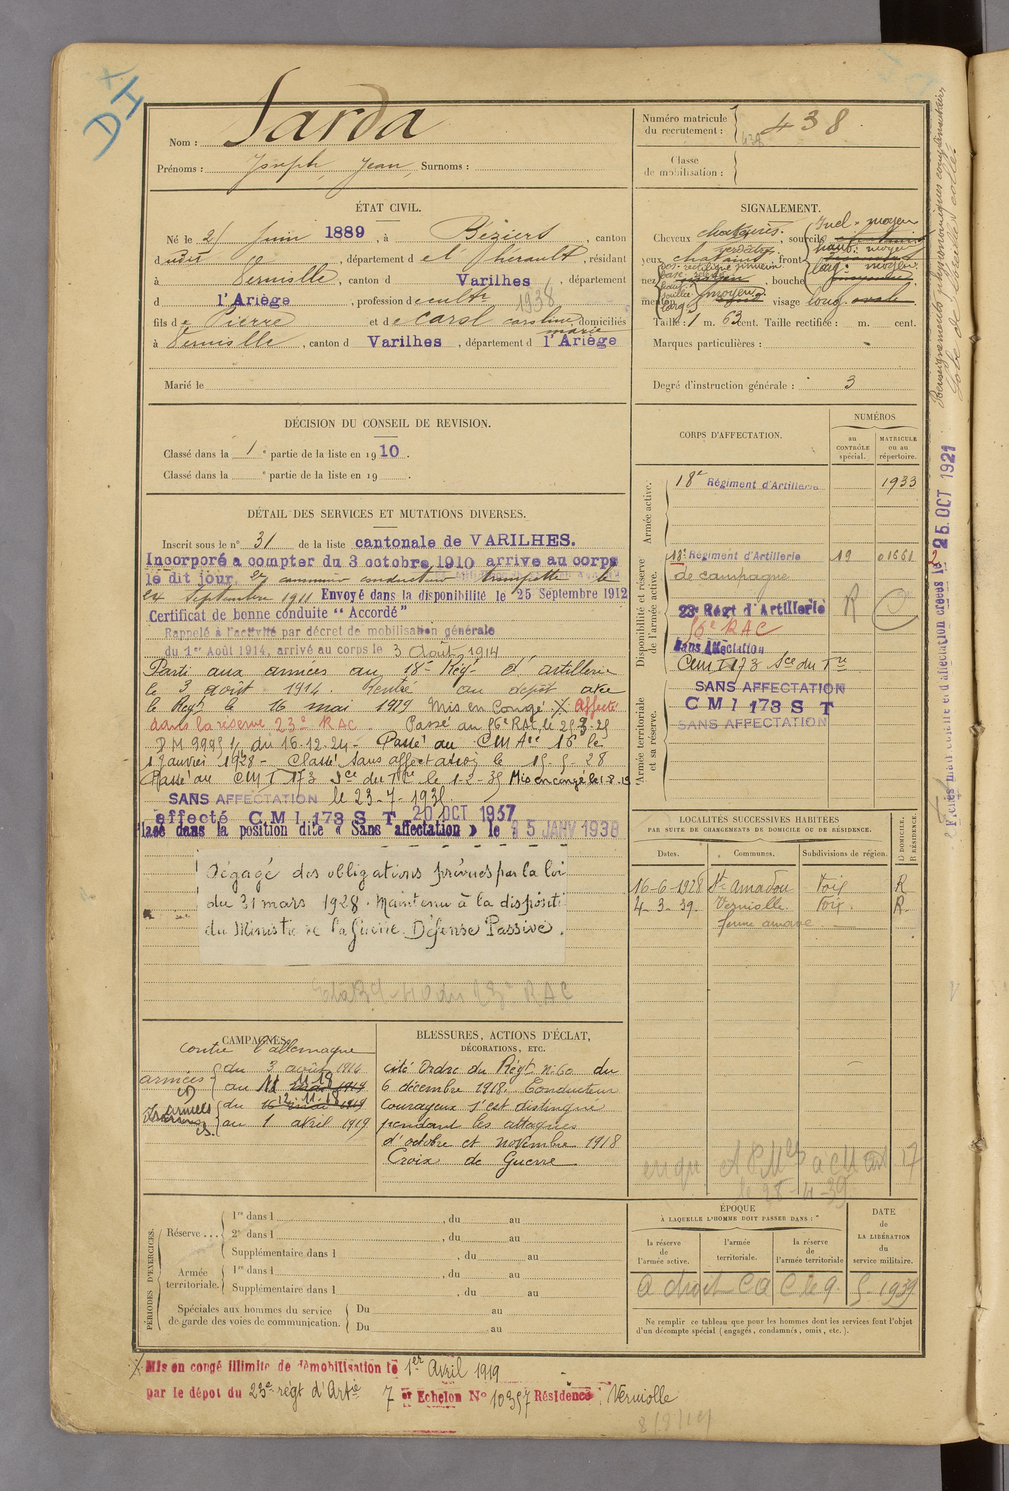 DI
Nom : Sarda
Prénoms : Joseph, Jean, Surnoms :
Numéro matricule
du recrutement : 438
Classe
de mobilisation :
ÉTAT CIVIL.
Né le Juin 1889, à Béziers, canton
d, département d el hérault, résidant
à Verniolle, canton d Varilhes, département
d l'Ariège, profession de cultr 1938
fils de Pierre et de Carol Caroline marie domiciliés
à Verniolle, canton d Varilhes, département d l'Ariège
Marié le
SIGNALEMENT.
Cheveux chatains, sourcils
yeux chatains, front
Incl. moyen
haut. moyen
larg. moyen
nez, bouche
menton visage long ovale
Taille : 1 m. 63 cent. Taille rectifiée : m. cent.
Marques particulières : -
Degré d'instruction générale : 3
Renseignements physionomiques complémentaires
DÉCISION DU CONSEIL DE REVISION.
Classé dans la 1e partie de la liste en 1910.
Classé dans la e partie de la liste en 19 .
DÉTAIL DES SERVICES ET MUTATIONS DIVERSES.
Inscrit sous le n° 31 de la liste cantonale de VARILHES.
Incorporé a compter du 3 octobre 1910 arrive au corps
le dit jour, 2e cannonier conducteur trompette
24 Septembre 1911 Envoyé dans la disponibilité le 25 Septembre 1912
Certificat de bonne conduite "Accordé"
Rappelé à l'activité par décret de mobilisation générale
du 1er Août 1914, arrivé au corps le 3 Août 1914
Parti aux armées au 18e Régt d'artillerie
le 3 août 1914. Rentré au dépôt avec
le Régt le 16 mai 1919 Mis en Congé X Affecté
dans la réserve 23e RAC Passé au 56e RAC le
DM 9995 1/ du 16.12.24 - Passé au CM Aie 16 le
1 Janvier 1928 - Classé sans affectation le 15-5-28
Passé au CM I 173 Sce du Tre le 1-2-35 Mis en congé le
SANS AFFECTATION le 23-7-193
affecté CMI 173 S T 20 OCT 1937
lacé dans la position dite « Sans affectation » le 15 JANV 1938
Dégagé des obligations prévues par la loi
du 31 mars 1928. Maintenu à la dispositi
du Ministre de la Guerre. Défense Passive.
CORPS D'AFFECTATION.
NUMÉROS
au
CONTRÔLE
spécial.
MATRICULE
ou au
répertoire.
Armée active.
18e Régiment d'Artillerie 1933
Disponibilité et réserve
de l'armée active.
18e Régiment d'Artillerie 19 01661
de campagne
23e Régt d'Artillerie R
56e RAC
Sans Affectation
CM I 173 Sce du Tre
Armée territoriale
et sa réserve.
SANS AFFECTATION
CMI 173 S T
SANS AFFECTATION
26 OCT 1921
LOCALITÉS SUCCESSIVES HABITÉES
PAR SUITE DE CHANGEMENTS DE DOMICILE OU DE RÉSIDENCE.
Dates.
Communes.
Subdivisions de région.
D DOMICILE,
R RÉSIDENCE.
16-6-1928 St Amadou Foix R
4-3-39. Verniolle Foix. R.
CAMPAGNES.
Contre l'allemagne
armées du 3 août 1914
au 11 11 18 mai 1919
du 12.11.18
au 1 avril 1919
BLESSURES, ACTIONS D'ÉCLAT,
DÉCORATIONS, ETC.
cité Ordre du Régt N°60 du
6 décembre 1918. Conducteur
Courageux s'est distingué
pendant les attaques
d'octobre et novembre 1918
Croix de Guerre
PÉRIODES D'EXERCICES.
Réserve ...
1re dans l , du au
2e dans l , du au
Supplémentaire dans l , du au
Armée
territoriale.
1re dans l , du au
Supplémentaire dans l , du au
Spéciales aux hommes du service
de garde des voies de communication.
Du au
Du au
ÉPOQUE
À LAQUELLE L'HOMME DOIT PASSER DANS :
la réserve
de
l'armée active.
l'armée
territoriale.
la réserve
de
l'armée territoriale
DATE
de
LA LIBÉRATION
du
service militaire.
A droit CA C le 9. 5-1939
Ne remplir ce tableau que pour les hommes dont les services font l'objet
d'un décompte spécial (engagés, condamnés, omis, etc.).
X Mis en congé illimité de démobilisation le 1er Avril 1919
par le dépôt du 23e régt d'Artie 7 et Echelon N° 10357 Résidence : Verniolle